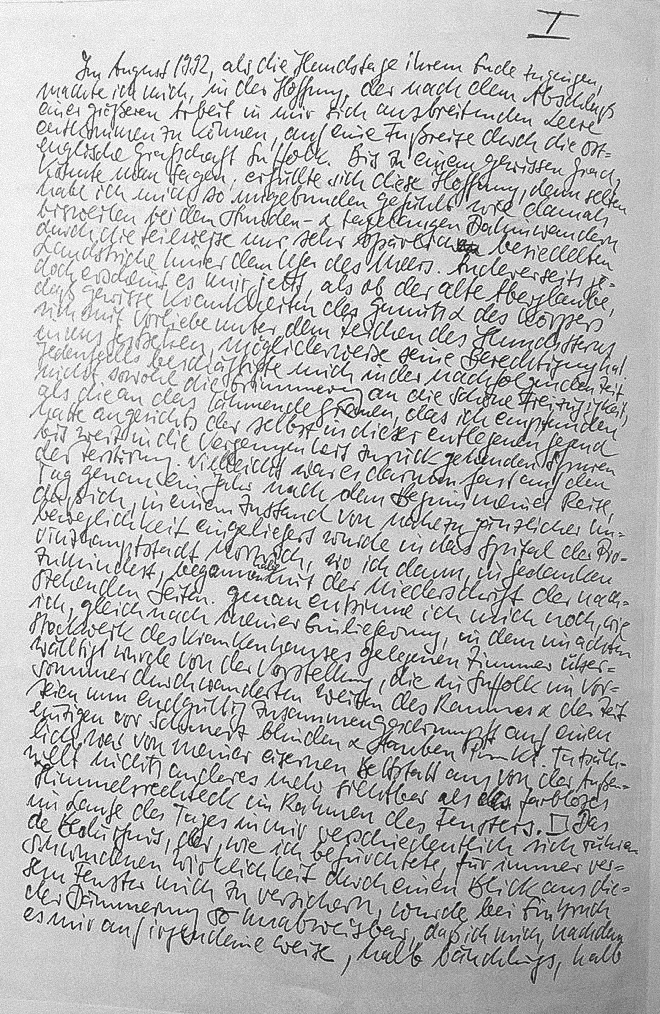 I
Im August 1992, als die Hundstage ihrem Ende zugingen,
machte ich mich, in der Hoffnung, der nach dem Abschluß
einer größeren Arbeit in mir sich ausbreitenden Leere
entkommen zu können, auf eine Fußreise durch die ost-
englische Grafschaft Suffolk. Bis zu einem gewissen Grad,
könnte man sagen, erfüllte sich diese Hoffnung, denn selten
habe ich mich so ungebunden gefühlt wie damals
bisweilen bei den stunden- & tagelangen Dahinwandern
durch die teilweise nur sehr spärlich besiedelten
Landstriche hinter dem Ufer des Meers. Andererseits je-
doch erscheint es mir jetzt, als ob der alte Aberglaube,
daß gewisse Krankheiten des Gemüts & des Körpers
sich mit Vorliebe unter dem Zeichen des Hundssterns
in uns festsetzen, möglicherweise seine Berechtigung hat.
Jedenfalls beschäftigte mich in der nachfolgenden Zeit
nicht sowohl die Erinnerung an die schöne Freizügigkeit,
als die an das lähmende Grauen, das ich empfunden
hatte angesichts der selbst in dieser entlegenen Gegend
bis weit in die Vergangenheit zurückgehenden Spuren
der Zerstörung. Vielleicht war es darum fast auf den
Tag genau ein Jahr nach dem Beginn meiner Reise,
daß ich, in einem Zustand von nahezu gänzlicher Un-
beweglichkeit eingeliefert wurde in das Spital der Pro-
vinzhauptstadt Norwich, wo ich dann, in Gedanken
zumindest, begann mit der Niederschrift der nach-
stehenden Seiten. Genau entsinne ich mich noch, wie
ich, gleich nach meiner Einlieferung, in dem im achten
Stockwerk des Krankenhauses gelegenen Zimmer über-
wältigt wurde von der Vorstellung, die in Suffolk im Vor-
sommer durchwanderten Weiten des Raumes & der Zeit
seien nun endgültig zusammengeschrumpft auf einen
einzigen vor Schmerz blinden & tauben Punkt. Tatsäch-
lich war von meiner eisernen Bettstatt aus von der Außen-
welt nichts anderes mehr sichtbar als das farblose
Himmelsrechteck im Rahmen des Fensters. Das
im Laufe des Tages in mir verschiedentlich sich rühren
de Bedürfnis, der, wie ich befürchtete, für immer ver-
schwundenen Wirklichkeit durch einen Blick aus die-
sem Fenster mich zu versichern, wurde bei Einbruch
der Dämmerung so unabweisbar, daß ich mich, nachdem
es mir auf irgendeine Weise, halb bäuchlings, halb